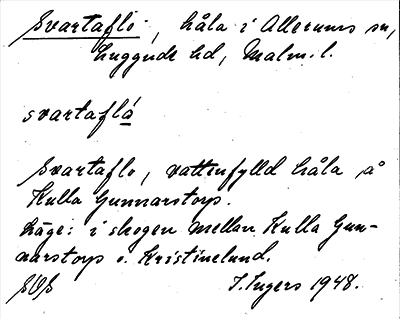 Svartaflo, håla i Allerums sn,
Luggude hd, Malm. l.
svartaflá
Svartaflo, vattenfylld håla å
Kulla Gunnarstorp.
Läge: i skogen mellan Kulla Gun-
narstorp o. Kristinelund.
SOS I. Ingers 1948.